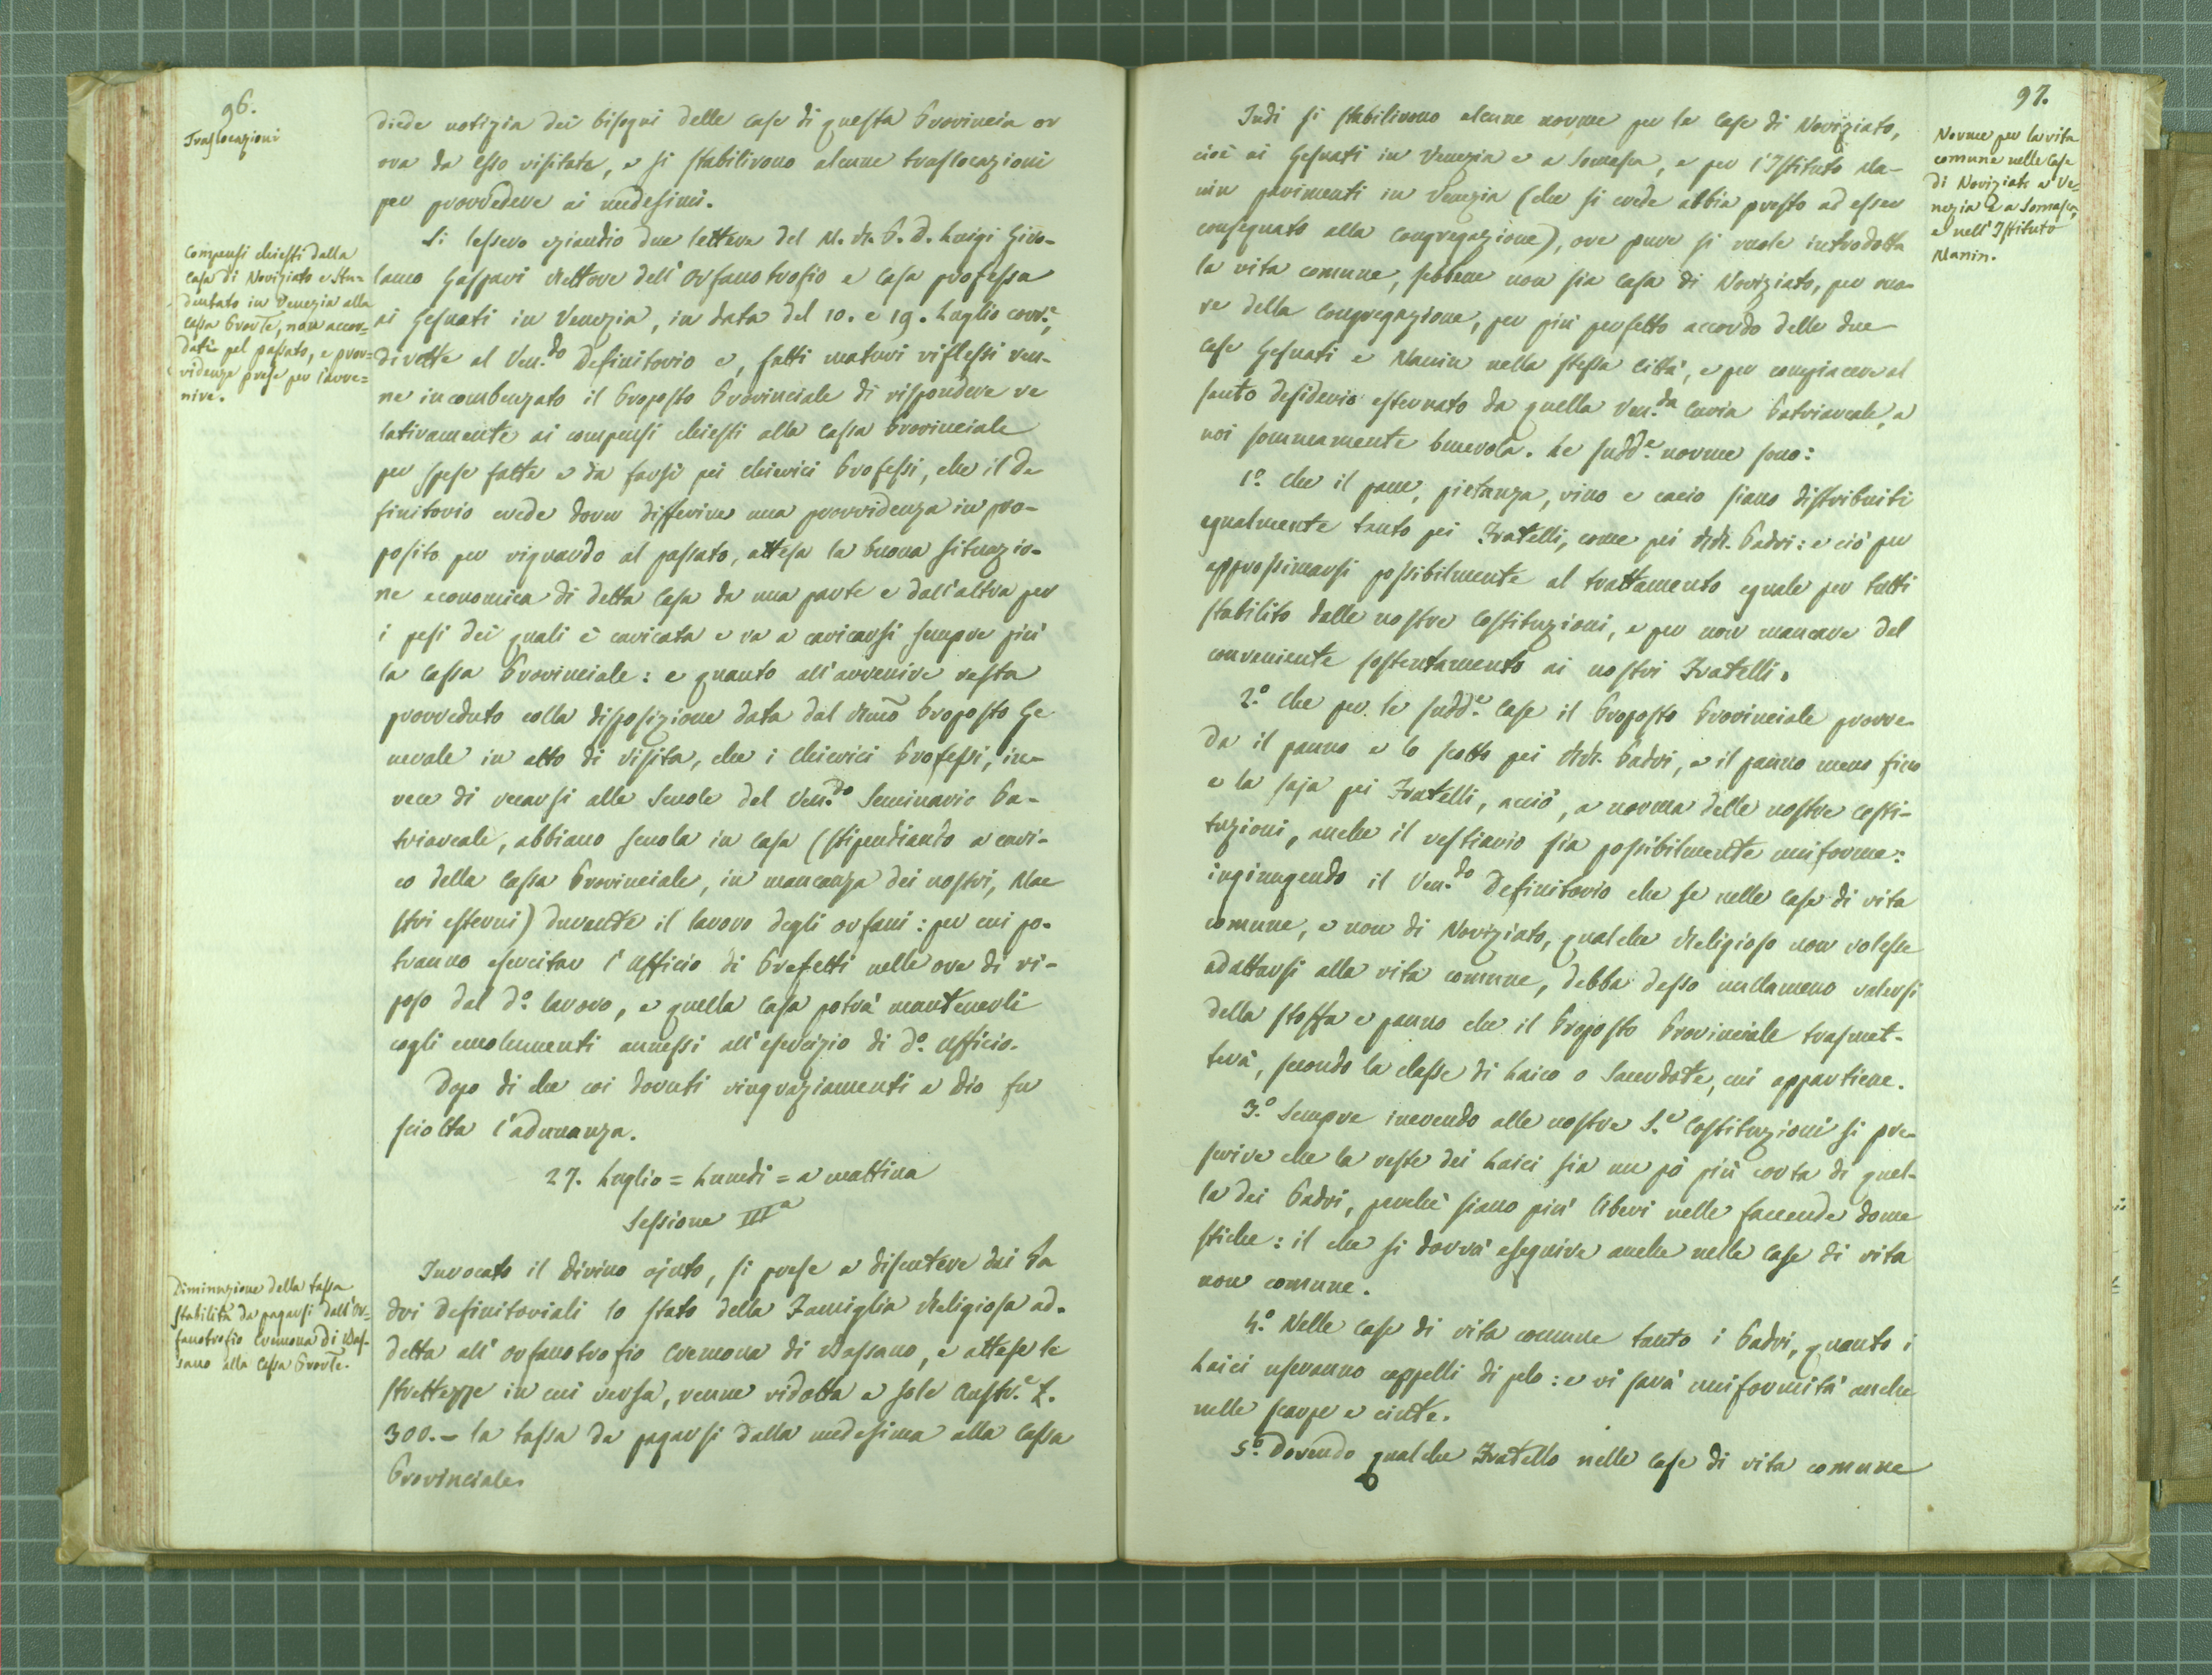 96.
Traslocazioni
diede notizia dei bisogni delle case di questa Provincia or
ora da esso visitata, e si stabilirono alcune traslocazioni
per provvedere ai medesimi.
Compensi chiesti dalla
Casa di Noviziato e Stu=
dentato in Venezia alla
Cassa Provle, non accor=
dati pel passato, e prov=
videnze prese per l'avve=
nire.
Si lessero eziandio due lettere del M. R. P. D. Luigi Giro-
lamo Gaspari Rettore dell'Orfanotrofio e Casa professa
ai Gesuati in Venezia, in data del 10. e 19. Luglio corr.e,
dirette al Ven.do Definitorio e, fatti maturi riflessi ven-
ne incombenzato il Proposto Provinciale di rispondere re
lativamente ai compensi chiesti alla Cassa Provinciale
per spese fatte e da farsi pei Chierici Professi, che il De
finitorio crede dover differire una provvidenza in pro-
posito per riguardo al passato, attesa la buona situazio-
ne economica di detta Casa da una parte e dall'altra per
i pesi dei quali è caricata e va a caricarsi sempre più
la Cassa Provinciale: e quanto all'avvenire resta
provveduto colla disposizione data dal Rmo Proposto Ge
nerale in atto di visita, che i Chierici Professi, in-
vece di recarsi alle Scuole del Ven.do Seminario Pa-
triarcale, abbiano scuola in casa (stipendiando a cari-
co della Cassa Provinciale, in mancanza dei nostri, Mae
stri esterni) durante il lavoro degli orfani: per cui po-
tranno esercitar l'ufficio di Prefetti nelle ore di ri-
poso dal d.o lavoro, e quella Casa potrà mantenerli
cogli emolumenti annessi all'esercizio di d.o ufficio.
Dopo di che coi dovuti ringraziamenti a Dio fu
sciolta l'adunanza.
27. Luglio = Lunedì = a mattina
Sessione IIIa
Diminuzione della tassa
stabilita da pagarsi dall'Or=
fanotrofio Cremona di Bas=
sano alla Cassa Provle.
Invocato il divino ajuto, si prese a discutere dai Pa
dri Definitoriali lo stato della Famiglia Religiosa ad-
detta all'orfanotrofio Cremona di Bassano, e attese le
strettezze in cui versa, venne ridotta a sole Austr.e L.
300.- la tassa da pagarsi dalla medesima alla Cassa
Provinciale.
97.
Norme per la vita
comune nelle Case
di Noviziato a Ve=
nezia e a Somasca,
e nell'Istituto
Manin.
Indi si stabilirono alcune norme per le Case di Noviziato,
cioè ai Gesuati in Venezia e a Somasca, e per l'Istituto Ma-
nin parimenti in Venezia (che si crede abbia presto ad esser
consegnato alla Congregazione), ove pure si vuole introdotta
la vita comune, sebbene non sia Casa di Noviziato, per ono-
re della Congregazione, per più perfetto accordo delle due
Case Gesuati e Manin nella stessa Città, e per compiacere al
santo desiderio esternato da quella Ven.da Curia Patriarcale, a
noi sommamente benevola. Le sudd.e norme sono:
1.o Che il pane, pietanza, vino e cacio siano distribuiti
egualmente tanto pei Fratelli, come pei RR. Padri: e ciò per
approssimarsi possibilmente al trattamento eguale per tutti
stabilito dalle nostre Costituzioni, e per non mancare del
conveniente sostentamento ai nostri Fratelli.
2.o Che per le sudd.e Case il Proposto Provinciale provve-
da il panno e lo scotto pei RR. Padri, e il panno meno fino
e la saja pei Fratelli, acciò, a norma delle nostre Costi-
tuzioni, anche il vestiario sia possibilmente uniforme:
ingiungendo il Ven.do Definitorio che se nelle Case di vita
comune, e non di Noviziato, qualche Religioso non volesse
adattarsi alla vita comune, debba desso nullameno valersi
della stoffa e panno che il Proposto Provinciale trasmet-
terà, secondo la classe di Laico o Sacerdote, cui appartiene.
3.o Sempre inerendo alle nostre S.e Costituzioni si pre-
scrive che la veste dei Laici sia un pò più corta di quel-
la dei Padri, perchè siano più liberi nelle faccende dome
stiche: il che si dovrà eseguire anche nelle Case di vita
non comune.
4.o Nelle Case di vita comune tanto i Padri, quanto i
Laici useranno cappelli di pelo: e vi sarà uniformità anche
nelle scarpe e cinte.
5.o Dovendo qualche Fratello nelle Case di vita comune